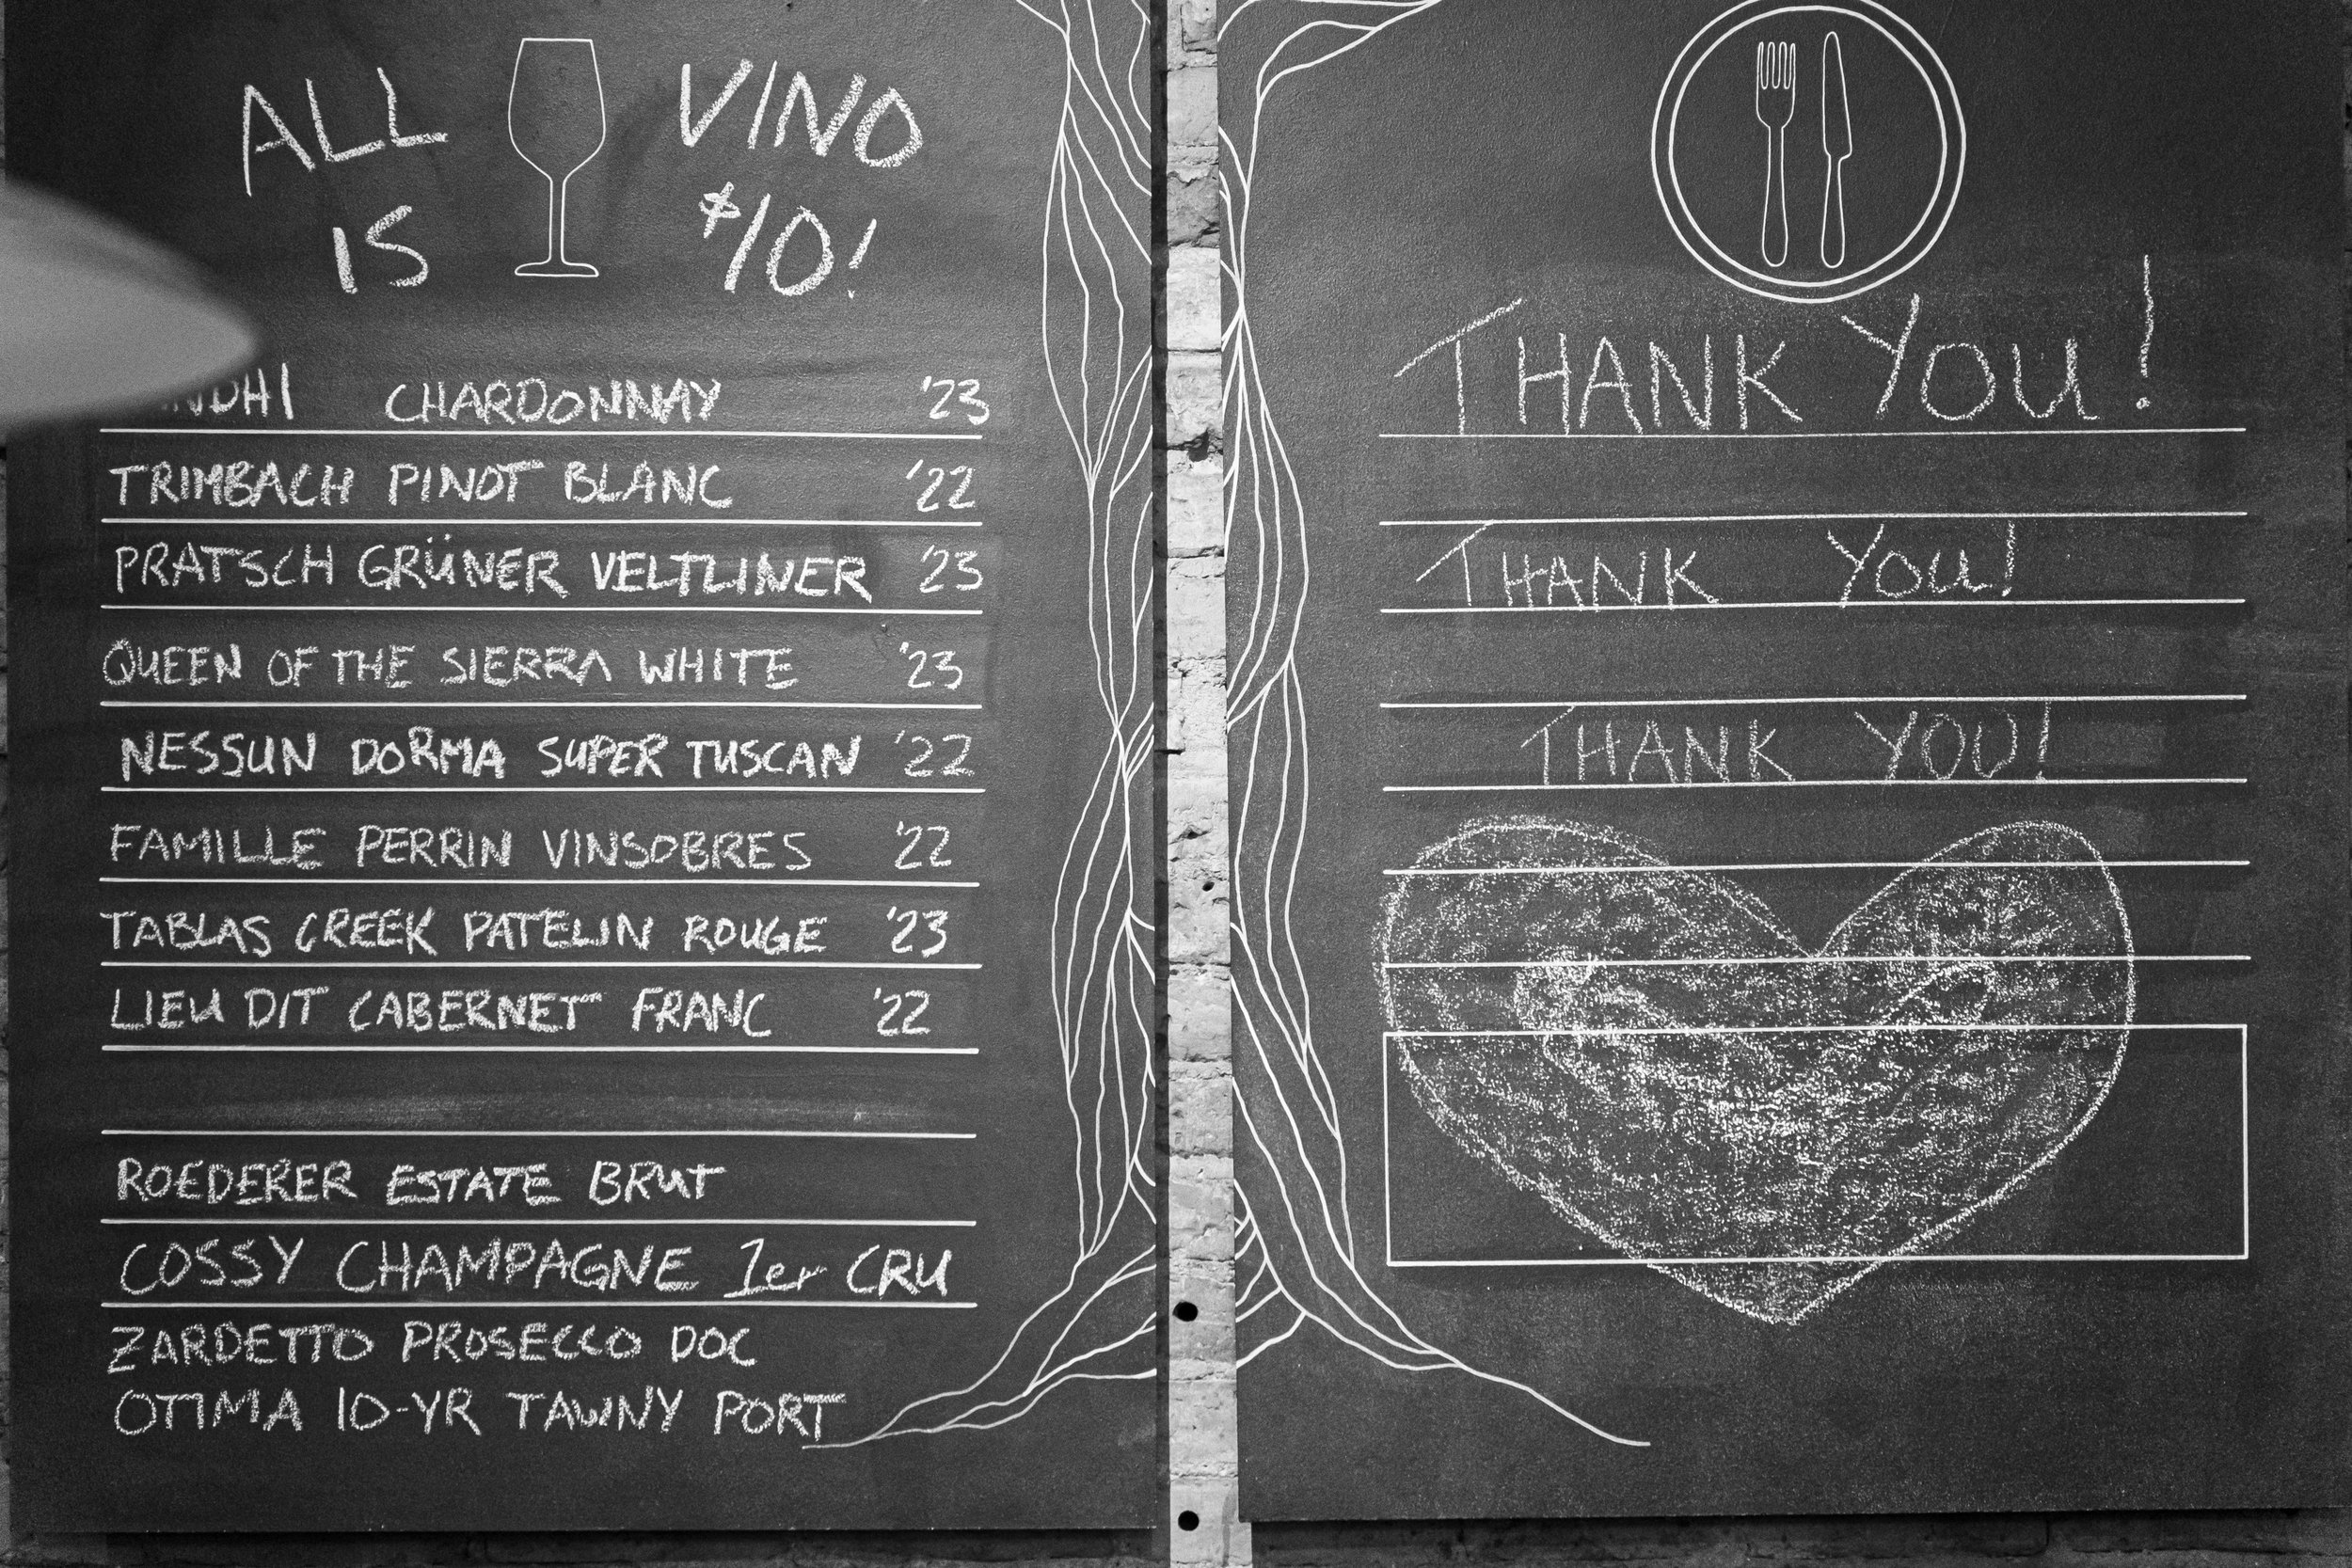 ALL VINO
IS $10!
CHARDONNAY '23
TRIMBACH PINOT BLANC '22
PRATSCH GRÜNER VELTLINER '23
QUEEN OF THE SIERRA WHITE '23
NESSUN DORMA SUPER TUSCAN '22
FAMILLE PERRIN VINSOBRES '22
TABLAS CREEK PATELIN ROUGE '23
LIEU DIT CABERNET FRANC '22
ROEDERER ESTATE BRUT
COSSY CHAMPAGNE 1er CRU
ZARDETTO PROSECCO DOC
OTIMA 10-YR TAWNY PORT
THANK YOU!
THANK YOU!
THANK YOU!